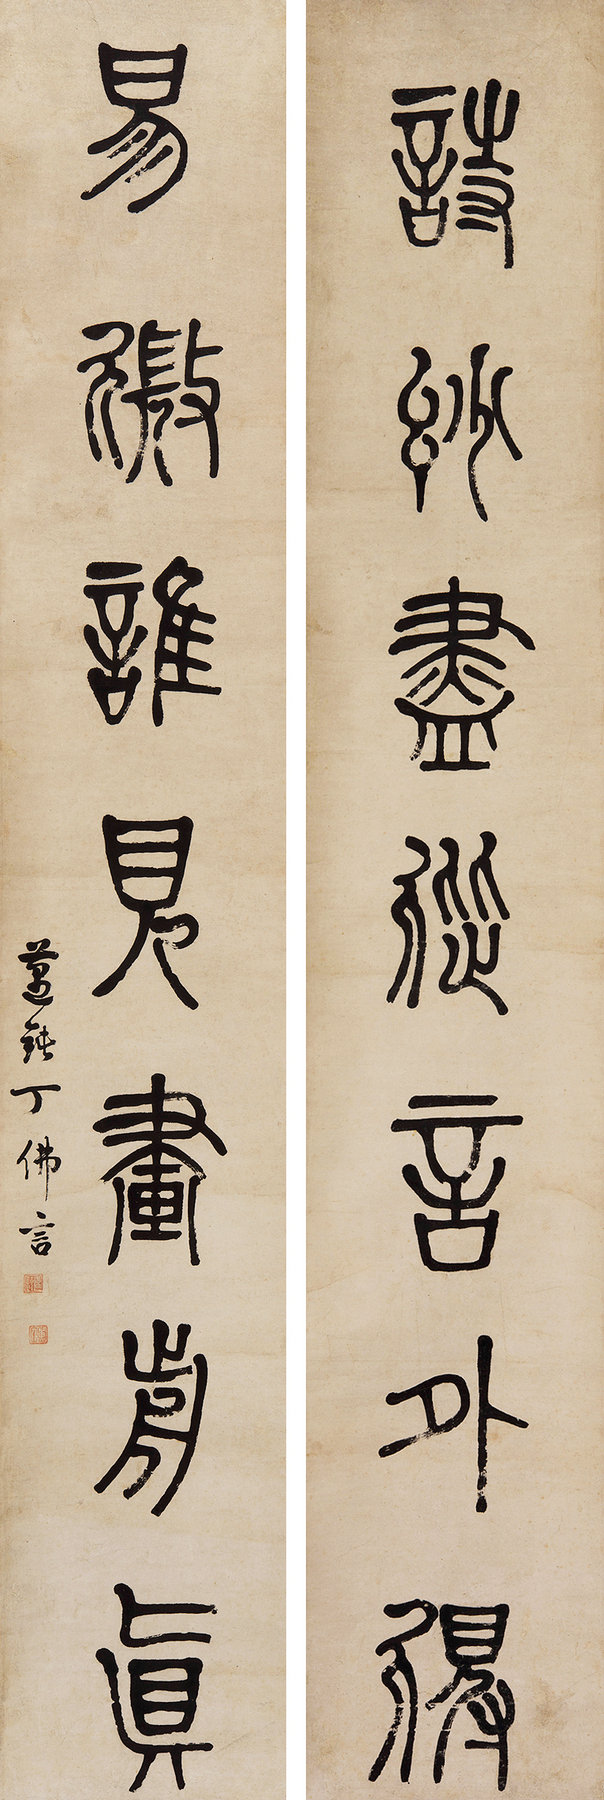 詩妙盡從言外得
易微誰見畫前真
邁鈍丁佛言